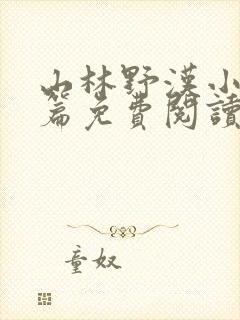 山林野漢小
篇免費閱讀
童奴